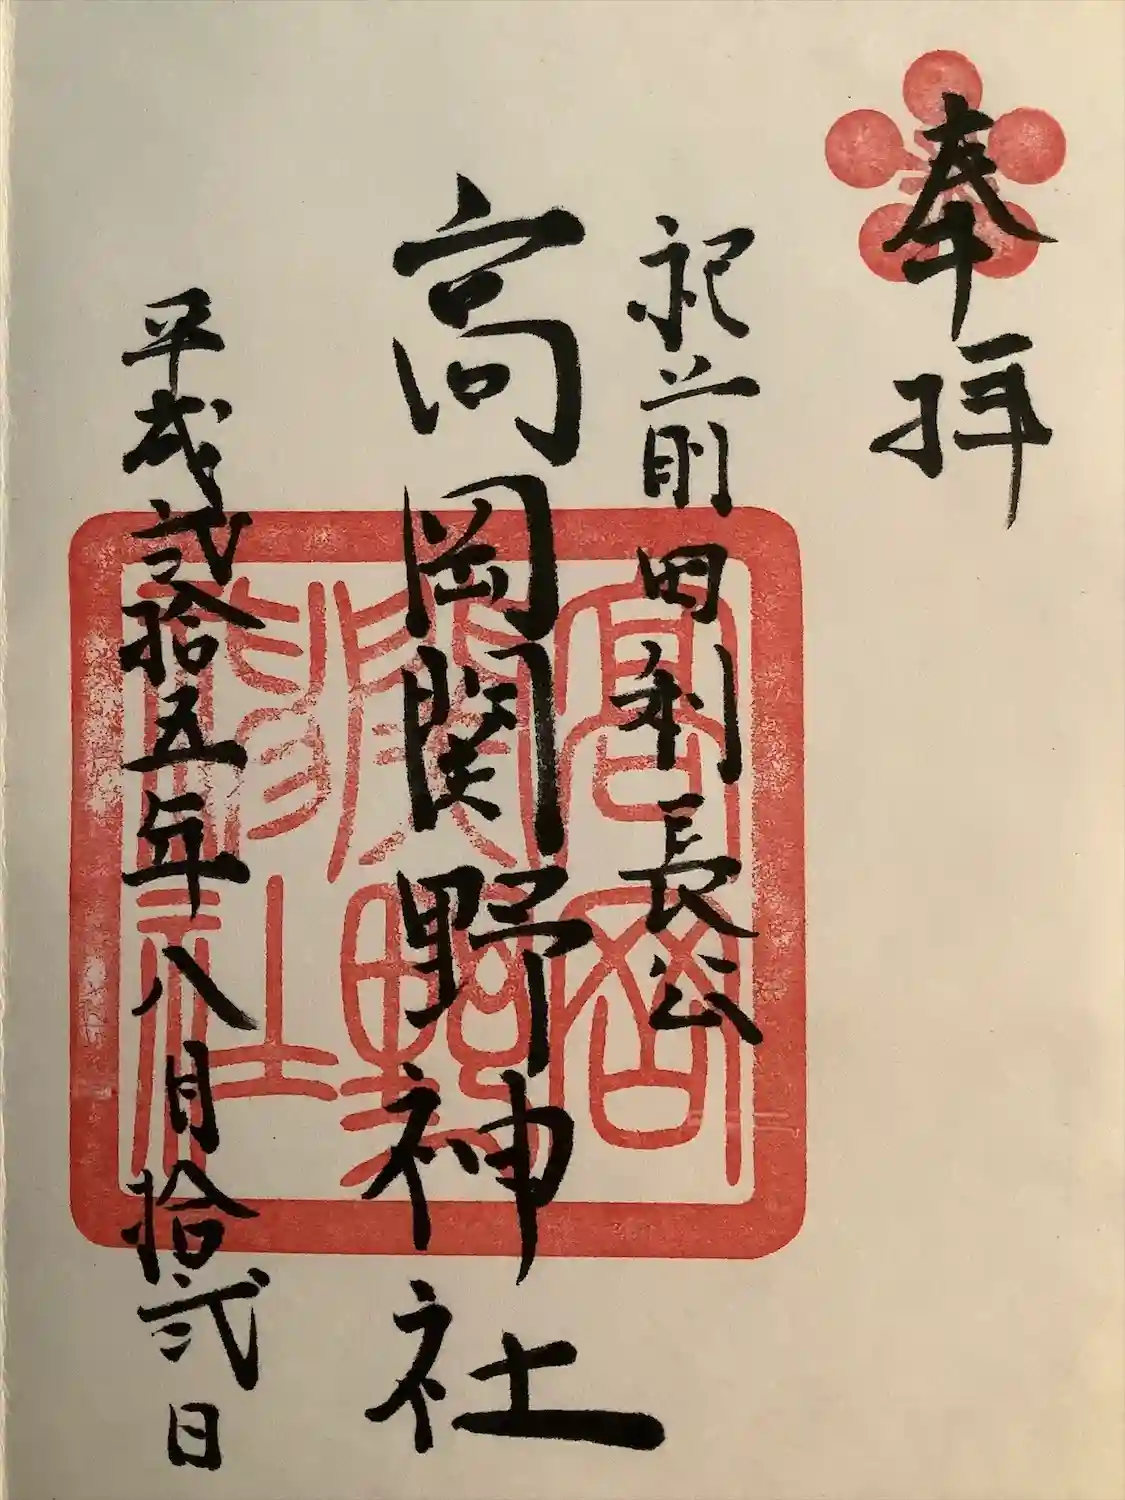 奉拝
祀前田利長公
高岡関野神社
平成弐拾五年八月拾弐日
高岡關野神社